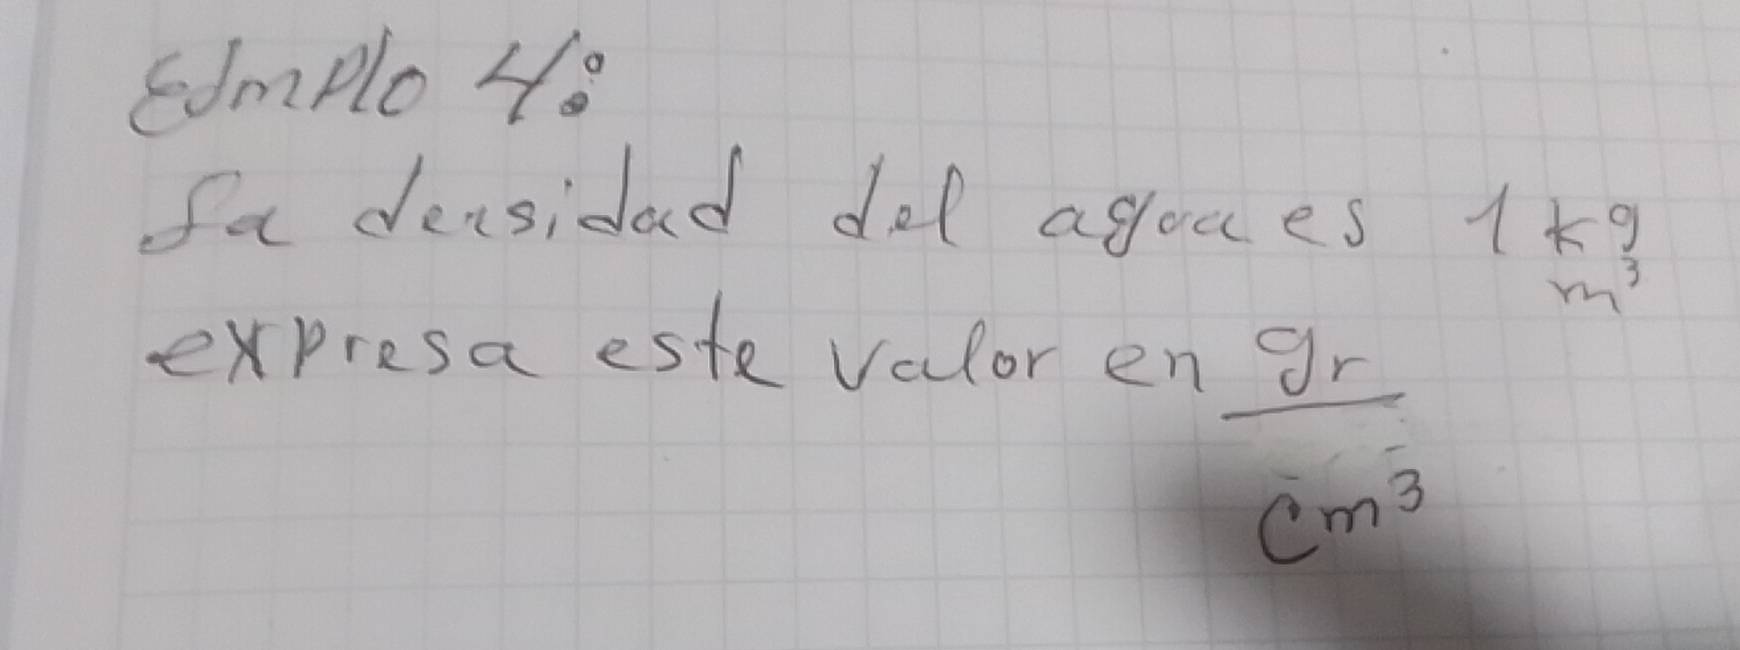 EJmplo 4:
La densidad del agua es 1 kg
m³
expresa este valor en gr
cm³